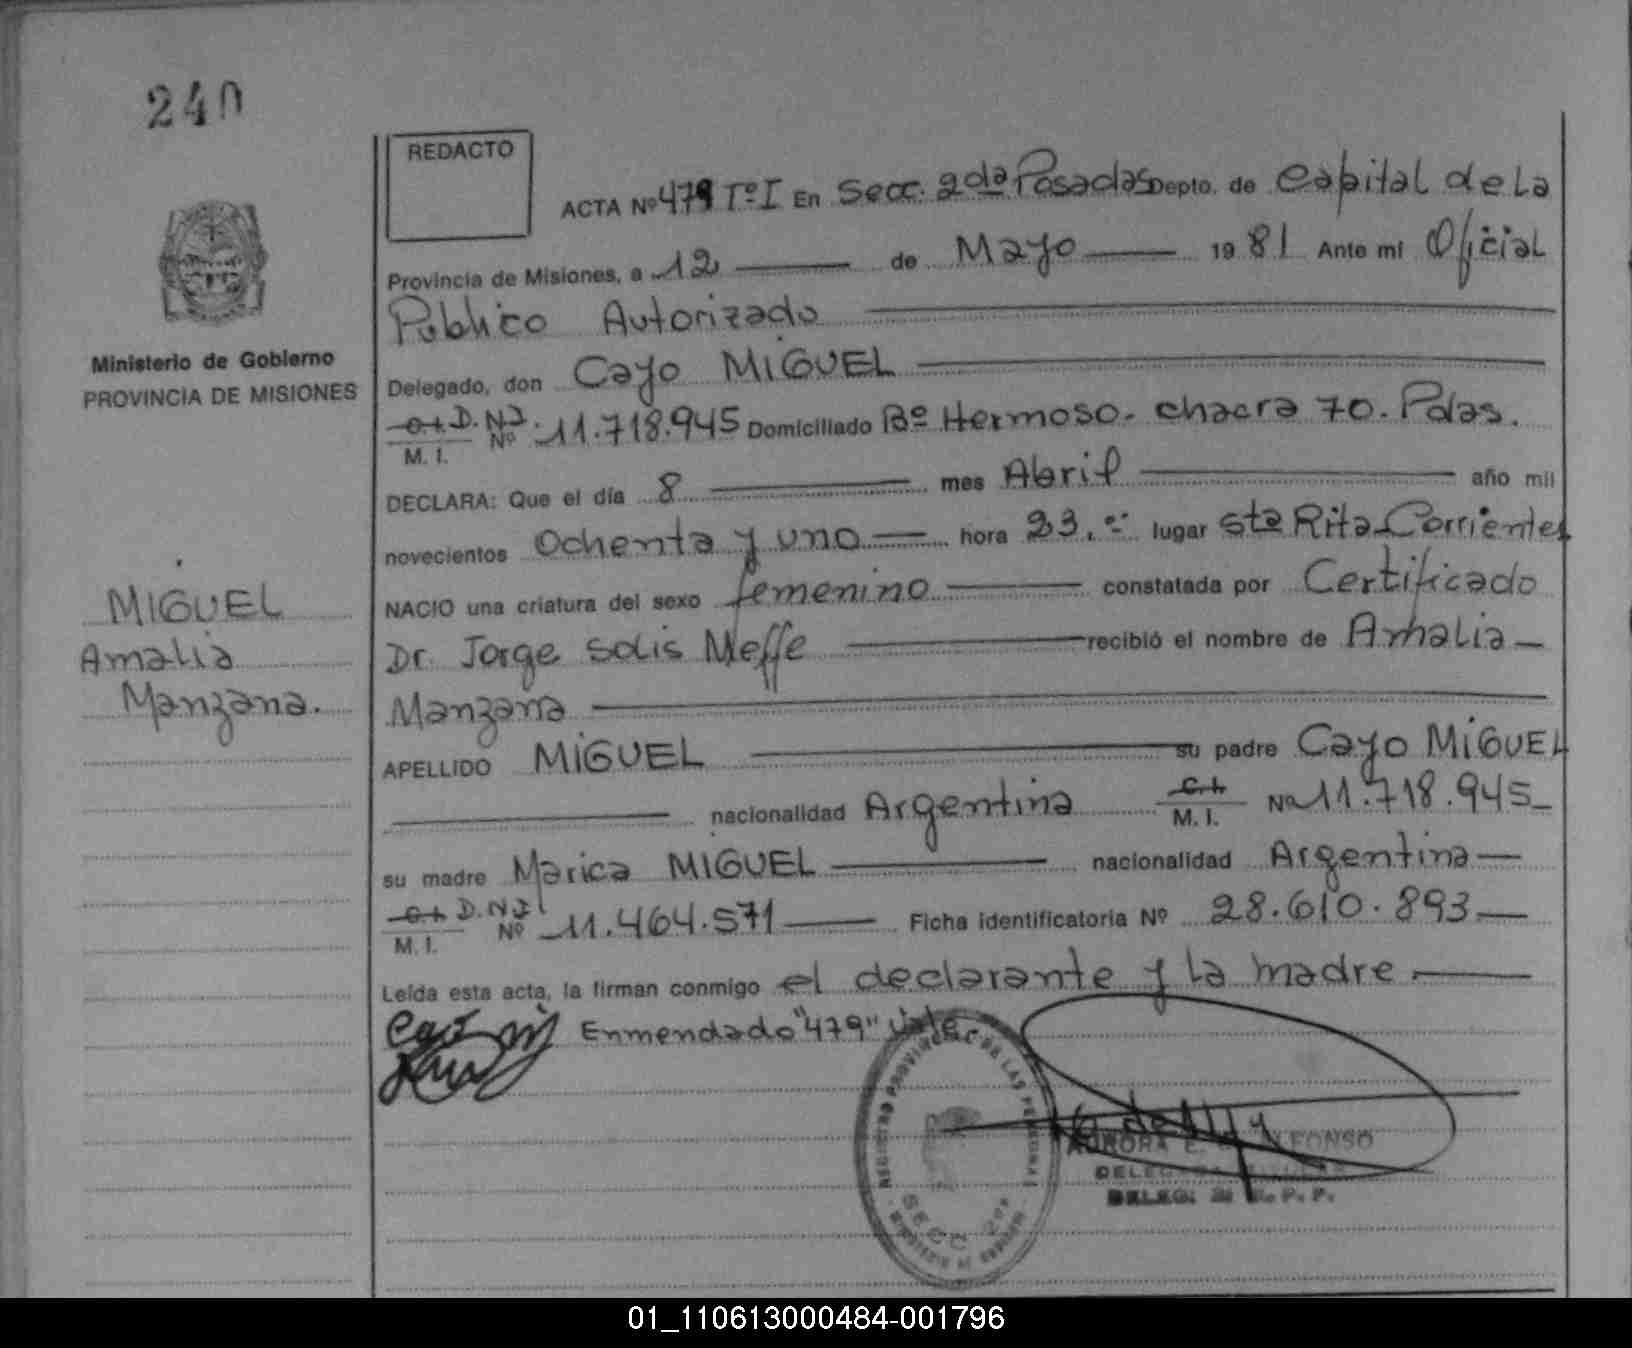 240
REDACTO
ACTA Nº 479 Tº I En Secc. 2da Posadas Depto. de Capital de La
Provincia de Misiones, a 12 de Mayo 1981 Ante mi Oficial
Público Autorizado
Delegado, don Cayo MIGUEL
C.I. D.N.I. M. I. Nº 11.718.945 Domiciliado Bº Hermoso. chacra 70. Pdas.
DECLARA: Que el día 8 mes Abril año mil
novecientos Ochenta y uno hora 23. lugar Sta Rita Corrientes
NACIO una criatura del sexo femenino constatada por Certificado
Dr. Jorge Solis Meffe recibió el nombre de Amalia
Manzana
APELLIDO MIGUEL su padre Cayo MIGUEL
nacionalidad Argentina C.I. M. I. Nº 11.718.945
su madre Marica MIGUEL nacionalidad Argentina
C.I. D.N.I. M. I. Nº 11.464.571 Ficha identificatoria Nº 28.610.893
Leída esta acta, la firman conmigo el declarante y la madre.
Enmendado "479" Vale
Ministerio de Gobierno
PROVINCIA DE MISIONES
MIGUEL
Amalia
Manzana.
REGISTRO PROVINCIAL DE LAS PERSONAS
SECC 2da
AURORA E. FONSO
DELEG. R. P. P.
01_110613000484-001796